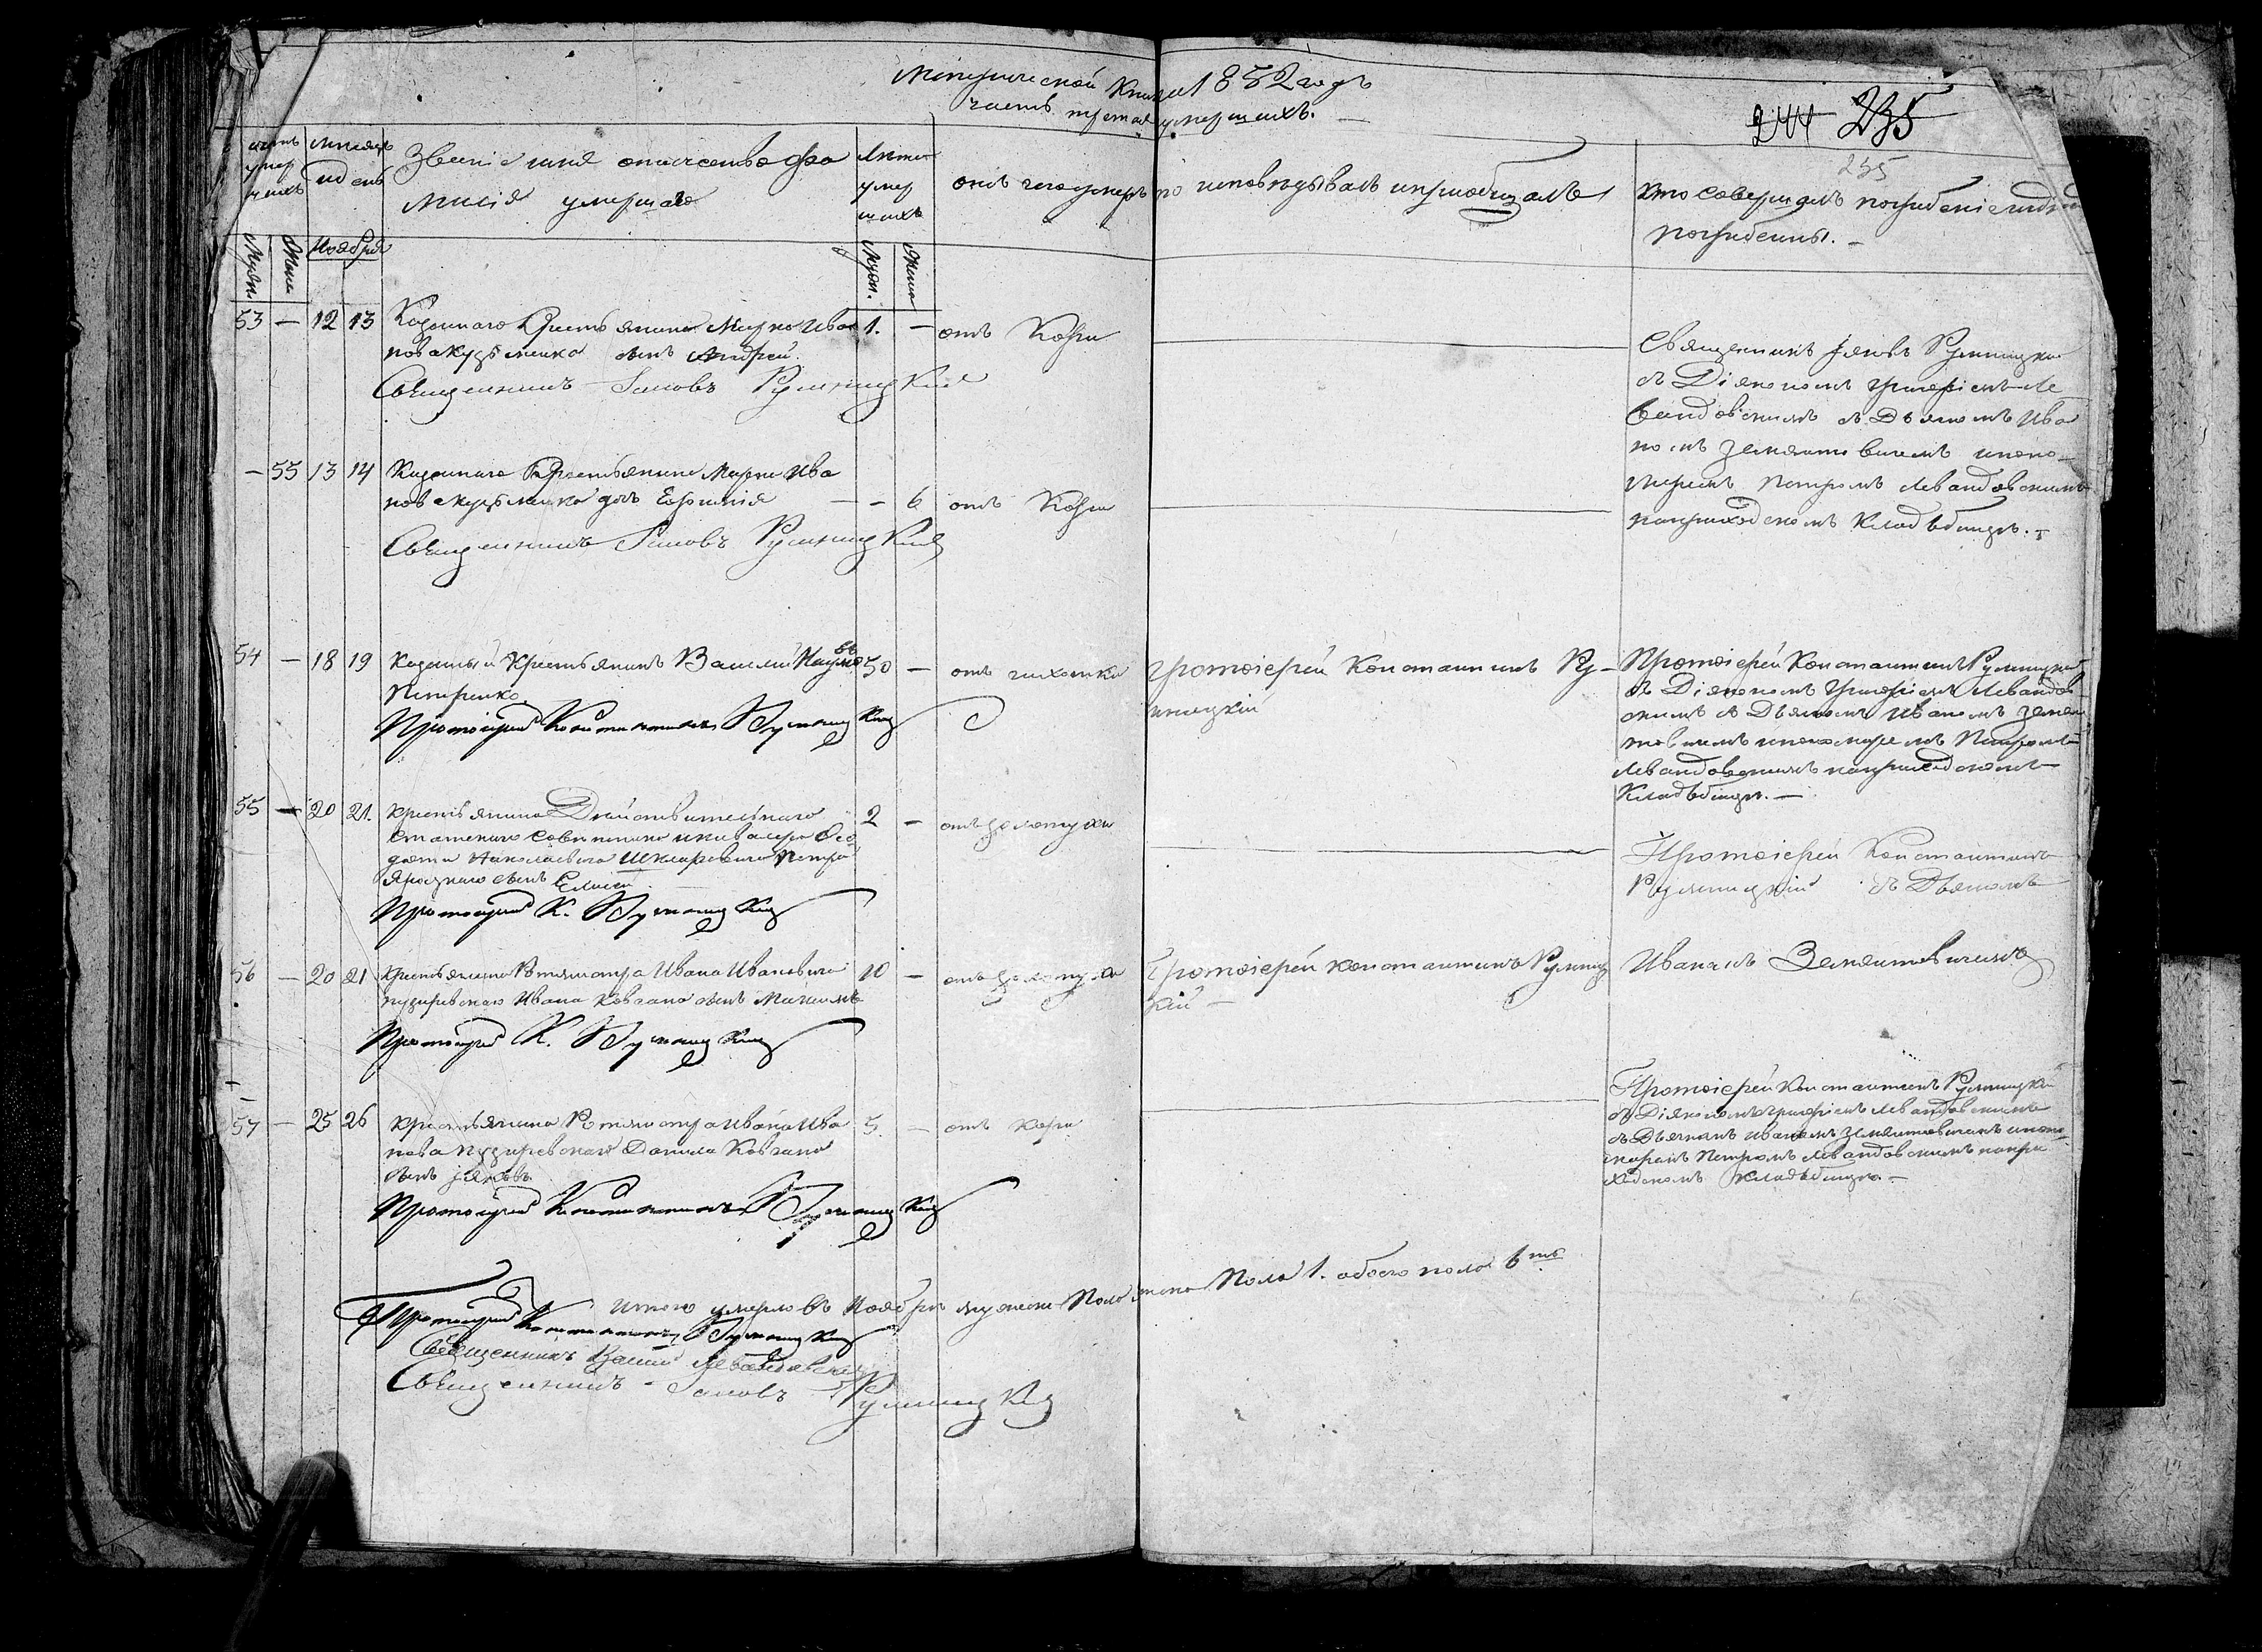 Метрической Книги 1852 года
часть третая умершихъ.
244 235
235
счетъ умер шихъ
Мѣсяцъ и день
Званіе имя отчество и фа
милія умершаго
Лѣта умер шихъ
отъ чего умеръ
кто исповѣдывалъ и пріобщалъ
Кто совершалъ погребеніе и гдѣ
погребены.
Муж.
Жен.
Ноября
Муж.
Жен.
53 — 12 13 Казеннаго Крестьянина Марка Ива 1. — отъ Кори
нова Кузьменка сынъ Андрей.
Священникъ Іаковъ Румницкій
Священникъ Іяковъ Румницкій
съ Діякономъ Григоріемъ Ле
вандовскимъ съ Дьякомъ Ива
номъ Земянтовичемъ и поно
маремъ Петромъ Левандовскимъ
на приходскомъ Кладбищѣ.
— 55 13 14 Казеннаго Крестьянина Марка Ива
нова Кузьменка дочь Ефимія — 6 отъ Кори
Священникъ Іаковъ Румницкій
54 — 18 19 Казенный Крестьянинъ Василій Наумовъ 50 — отъ чахотки
Петренко
Протоіерей Константинъ Румницкій
Протоіерей Константинъ Ру
мницкій
Протоіерей Константинъ Румницкій
съ Діякономъ Григоріемъ Левандов
скимъ съ Дьякомъ Иваномъ Земян
товичемъ и пономаремъ Петромъ
Левандовскимъ на приходскомъ
Кладбищѣ. —
55 — 20 21. Крестьянина Дѣйствительнаго 2 — отъ золотухи
Статскаго Совѣтника и кавалера Ѳео
Николаевича Петра
сынъ Елисей
Протоіерей К. Румницкій
Протоіерей Константинъ
Румницкій съ Дьякомъ
56 — 20 21 Крестьянина Ротмистра Ивана Ивановича 10 — отъ золотухи
Пузыревскаго Ивана Ковгана сынъ Максимъ
Протоіерей К. Румницкій
Протоіерей Константинъ Румниц
кій —
Иваномъ Земянтовичемъ
57 — 25 26 Крестьянина Ротмистра Ивана Ива 5. — отъ Кори
нова Пузыревскаго Данила Ковгана
сынъ Іяковъ
Протоіерей Константинъ Румницкій
Протоіерей Константинъ Румницкій
съ Діякономъ Григоріемъ Левандовскимъ
съ Дьякомъ Иваномъ Земянтовичемъ и поно
маремъ Петромъ Левандовскимъ на при
ходскомъ Кладбищѣ. —
Итого умерло въ Ноябрѣ мужеска Пола женска Пола 1. обоего пола 6ть
Протоіерей Константинъ Румницкій
Священникъ Василій Левандовскій
Священникъ Іаковъ Румницкій